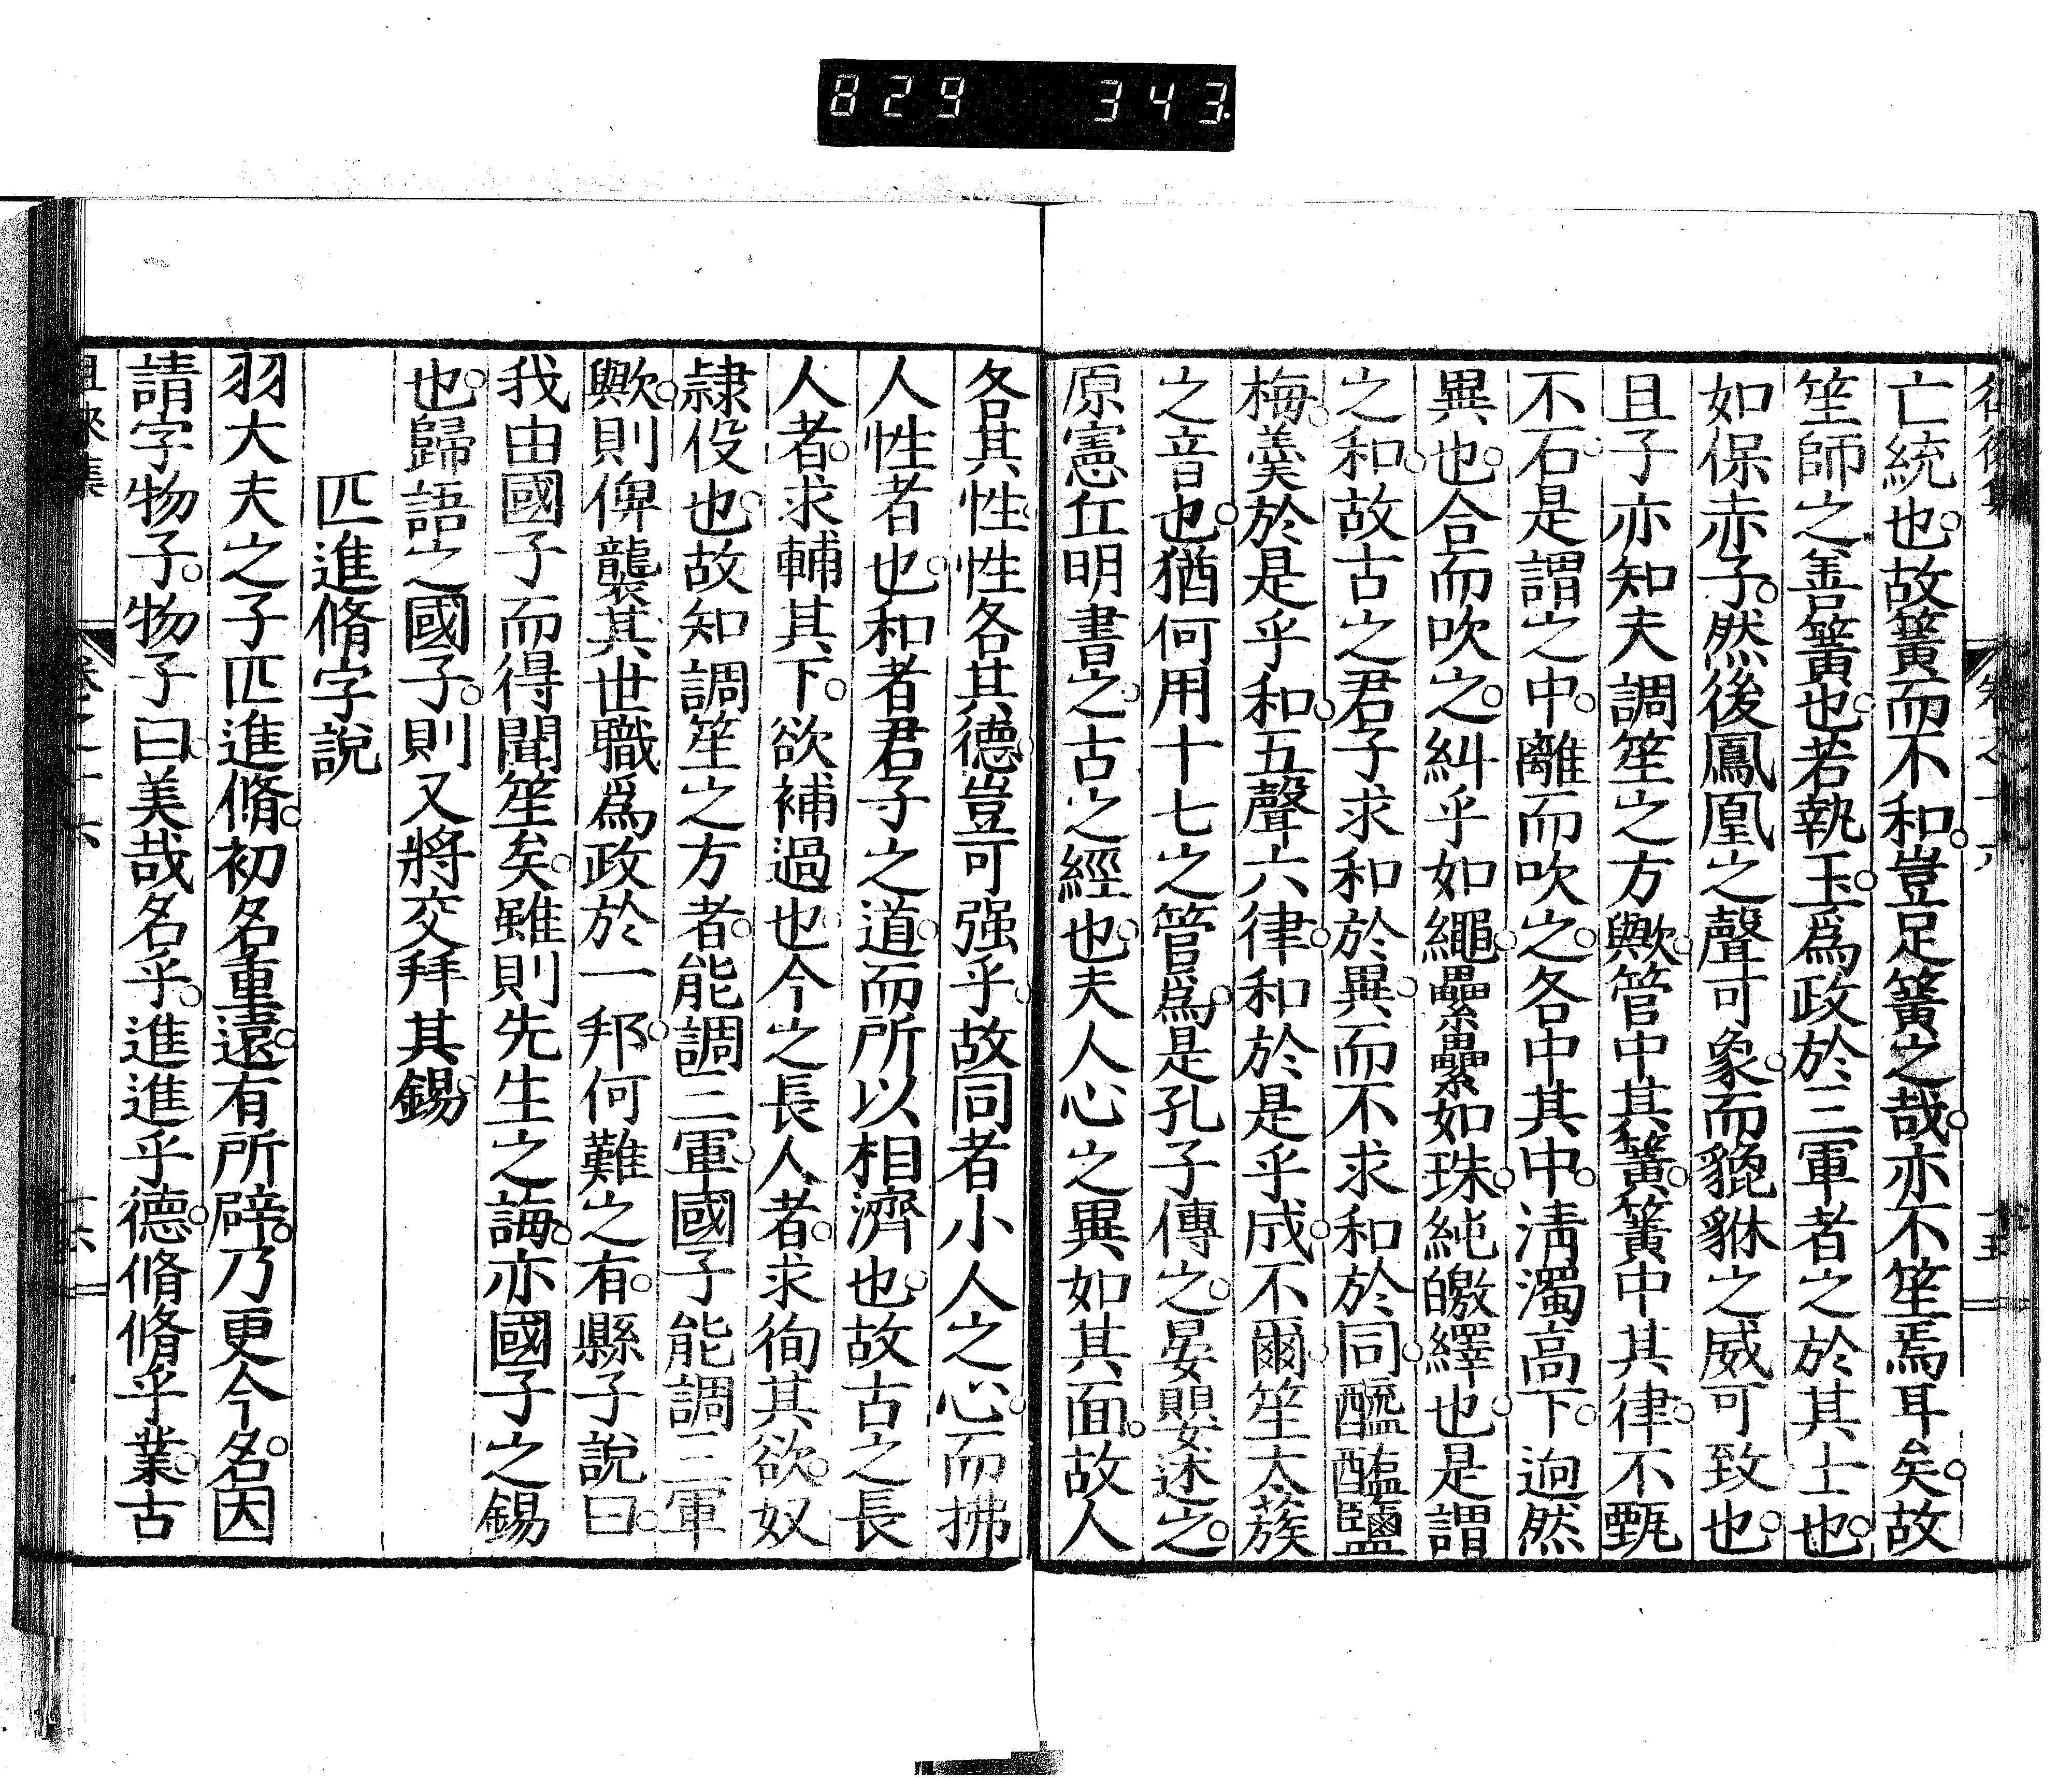 829 343
亡統也。故簧而不和。豈足簧之哉。亦不笙焉耳矣。故
笙師之善簧也。若執玉。爲政於三軍者之於其士也。
如保赤子。然後鳳凰之聲可象。而貔貅之威可致也。
且子亦知夫調笙之方歟。管中其簧。簧中其律。不甄
不石。是謂之中。離而吹之。各中其中。淸濁高下。逈然
異也。合而吹之。糾乎如繩。纍纍如珠。純皦繹也。是謂
之和。故古之君子求和於異。而不求和於同。醯醢鹽
梅。羹於是乎和。五聲六律。和於是乎成。不爾。笙太蔟
之音也。猶何用十七之管爲。是孔子傳之。晏嬰述之。
原憲丘明書之。古之經也。夫人心之異如其面。故人
各其性。性各其德。豈可强乎。故同者小人之心。而拂
人性者也。和者君子之道。而所以相濟也。故古之長
人者。求輔其下。欲補過也。今之長人者。求徇其欲。奴
隷役也。故知調笙之方者。能調三軍。國子能調三軍
歟。則俾襲其世職爲政於一邦。何難之有。縣子說曰。
我由國子而得聞笙矣。雖則先生之誨。亦國子之錫
也。歸語之國子。則又將交拜其錫。
匹進脩字說
羽大夫之子匹進脩。初名重遠。有所辟。乃更今名。因
請字物子。物子曰。美哉名乎。進進乎德。脩脩乎業。古
徂徠集 卷之十六 十六